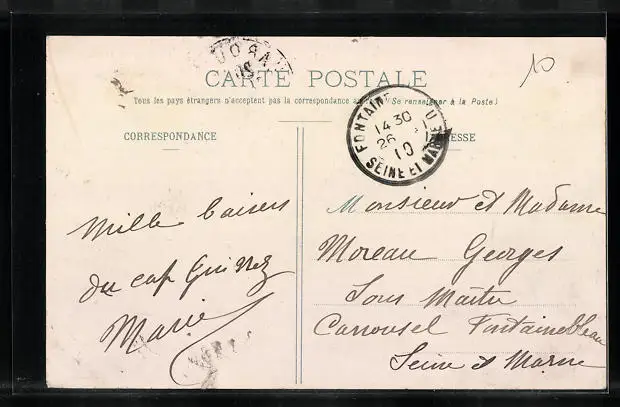 CARTE POSTALE
Tous les pays étrangers n'acceptent pas la correspondance au (Se renseigner à la Poste)
CORRESPONDANCE
ESSE
FONTAINE
14 30
26
10
SEINE ET MARNE
10
Mille baisers
du cap Grisnez
Marie
Monsieur et Madame
Moreau Georges
Sous Maitre
Carrousel Fontainebleau
Seine & Marne